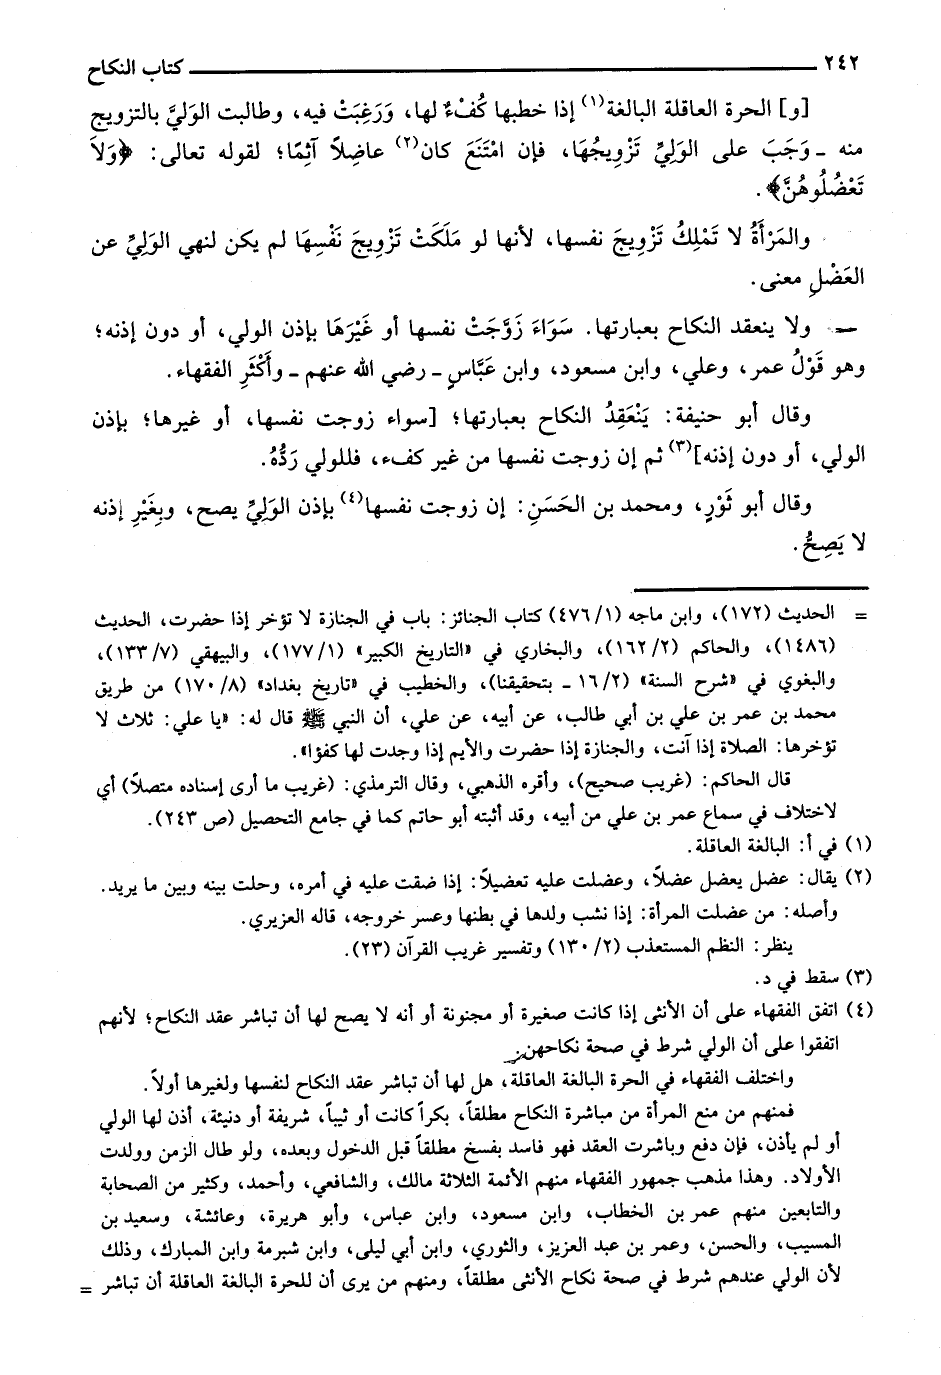 ٢٤٢ كتاب النكاح
[و] الحرة العاقلة البالغة(١) إذا خطبها كُفْءٌ لها، وَرَغِبَتْ فيه، وطالبت الوَلِيَّ بالتزويج
منه ـ وَجَبَ على الوَلِيِّ تَزْوِيجُهَا، فإن امْتَنَعَ كان(٢) عاضِلاً آثِمًا؛ لقوله تعالى: ﴿وَلاَ
تَعْضُلُوهُنَّ﴾.
والمَرْأَةُ لا تَمْلِكُ تَزْوِيجَ نفسها، لأنها لو مَلَكَتْ تَزْوِيجَ نَفْسِهَا لم يكن لنهي الوَلِيِّ عن
العَضْلِ معنى.
ـ ولا ينعقد النكاح بعبارتها. سَوَاءَ زَوَّجَتْ نفسها أو غَيْرَهَا بإذن الولي، أو دون إذنه؛
وهو قَوْلُ عمر، وعلي، وابن مسعود، وابن عَبَّاسٍ ـ رضي الله عنهم ـ وأَكْثَرِ الفقهاء.
وقال أبو حنيفة: يَنْعَقِدُ النكاح بعبارتها؛ [سواء زوجت نفسها، أو غيرها؛ بإذن
الولي، أو دون إذنه](٣) ثم إن زوجت نفسها من غير كفء، فللولي رَدُّهُ.
وقال أبو ثَوْرٍ، ومحمد بن الحَسَنِ: إن زوجت نفسها(٤) بإذن الوَلِيِّ يصح، وبِغَيْرِ إذنه
لا يَصِحُّ.
= الحديث (١٧٢)، وابن ماجه (٤٧٦/١) كتاب الجنائز: باب في الجنازة لا تؤخر إذا حضرت، الحديث
(١٤٨٦)، والحاكم (١٦٢/٢)، والبخاري في «التاريخ الكبير» (١٧٧/١)، والبيهقي (١٣٣/٧)،
والبغوي في «شرح السنة» (١٦/٢ ـ بتحقيقنا)، والخطيب في «تاريخ بغداد» (١٧٠/٨) من طريق
محمد بن عمر بن علي بن أبي طالب، عن أبيه، عن علي، أن النبي ﷺ قال له: «يا علي: ثلاث لا
تؤخرها: الصلاة إذا آنت، والجنازة إذا حضرت والأيم إذا وجدت لها كفؤا».
قال الحاكم: (غريب صحيح)، وأقره الذهبي، وقال الترمذي: (غريب ما أرى إسناده متصلاً) أي
لاختلاف في سماع عمر بن علي من أبيه، وقد أثبته أبو حاتم كما في جامع التحصيل (ص ٢٤٣).
(١) في أ: البالغة العاقلة.
(٢) يقال: عضل يعضل عضلاً، وعضلت عليه تعضيلاً: إذا ضقت عليه في أمره، وحلت بينه وبين ما يريد.
وأصله: من عضلت المرأة: إذا نشب ولدها في بطنها وعسر خروجه، قاله العزيري.
ينظر: النظم المستعذب (١٣٠/٢) وتفسير غريب القرآن (٢٣).
(٣) سقط في د.
(٤) اتفق الفقهاء على أن الأنثى إذا كانت صغيرة أو مجنونة أو أنه لا يصح لها أن تباشر عقد النكاح؛ لأنهم
اتفقوا على أن الولي شرط في صحة نكاحهن
واختلف الفقهاء في الحرة البالغة العاقلة، هل لها أن تباشر عقد النكاح لنفسها ولغيرها أولاً.
فمنهم من منع المرأة من مباشرة النكاح مطلقاً، بكراً كانت أو ثيباً، شريفة أو دنيئة، أذن لها الولي
أو لم يأذن، فإن دفع وباشرت العقد فهو فاسد بفسخ مطلقاً قبل الدخول وبعده، ولو طال الزمن وولدت
الأولاد. وهذا مذهب جمهور الفقهاء منهم الأئمة الثلاثة مالك، والشافعي، وأحمد، وكثير من الصحابة
والتابعين منهم عمر بن الخطاب، وابن مسعود، وابن عباس، وأبو هريرة، وعائشة، وسعيد بن
المسيب، والحسن، وعمر بن عبد العزيز، والثوري، وابن أبي ليلى، وابن شبرمة وابن المبارك، وذلك
لأن الولي عندهم شرط في صحة نكاح الأنثى مطلقاً، ومنهم من يرى أن للحرة البالغة العاقلة أن تباشر =